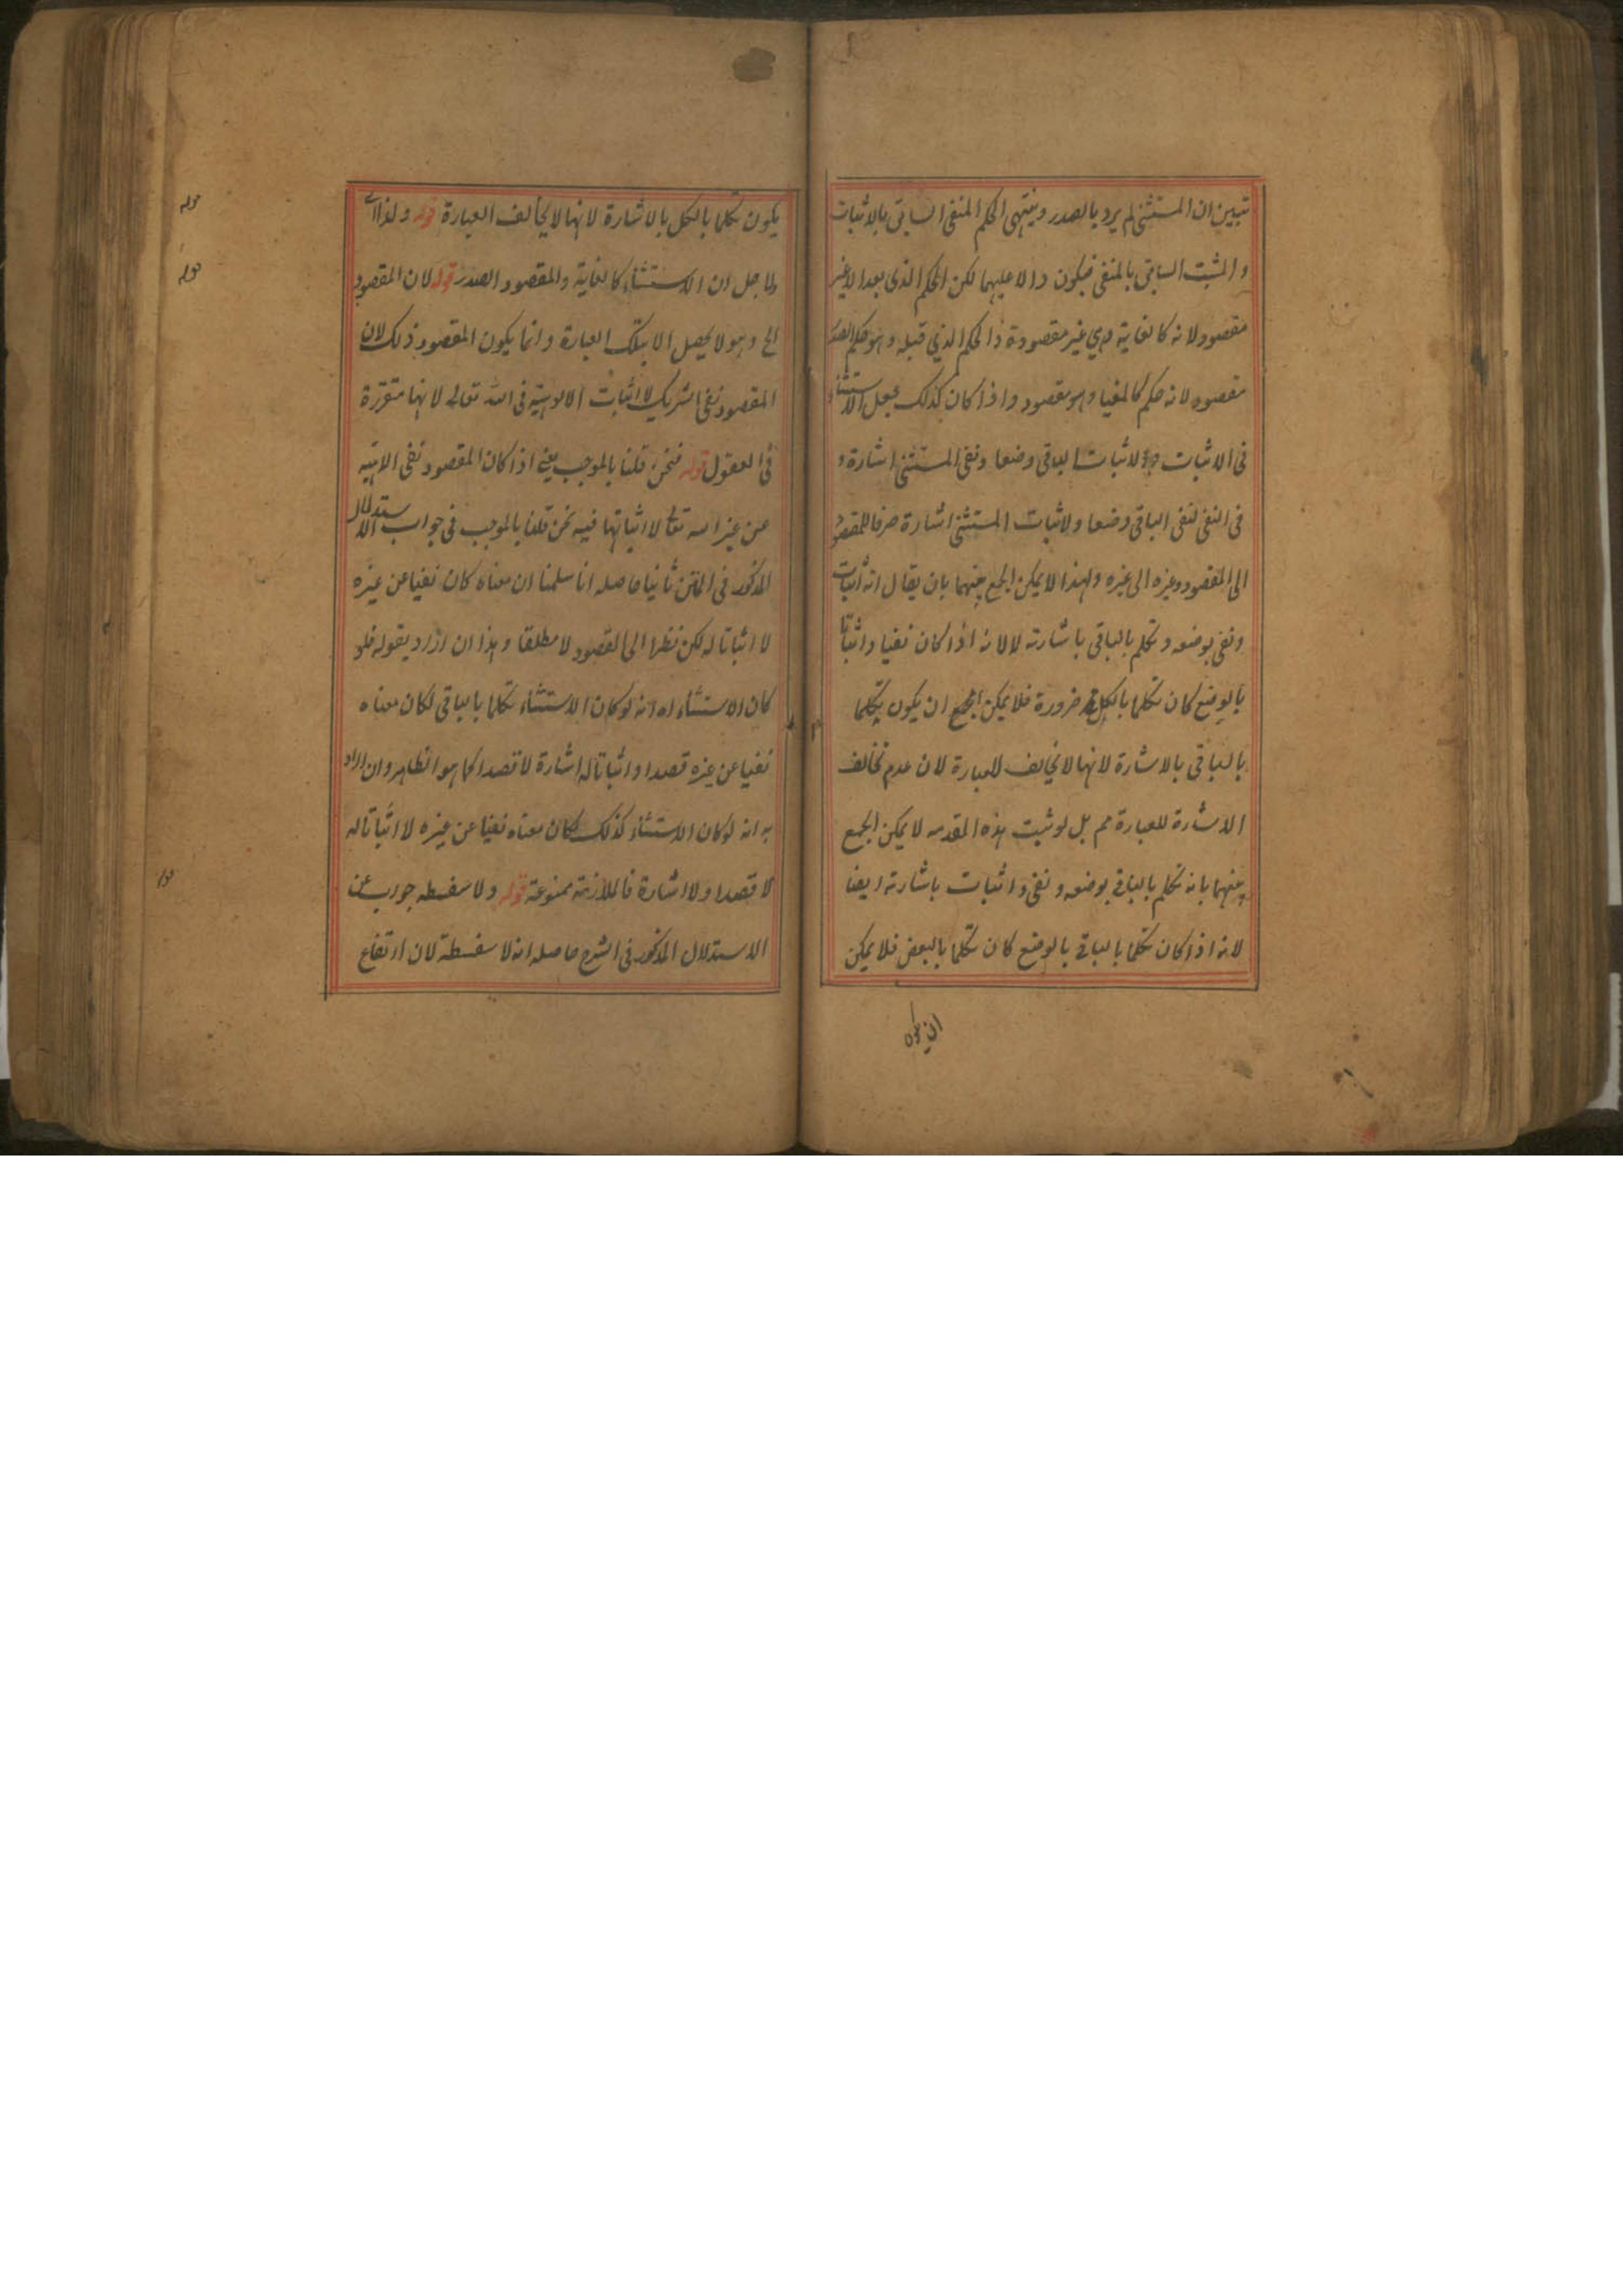 تبيين ان المستثنى لم يرد بالصدر وينتهى الحكم المنفى السابق بالاثبات
والمثبت السابق بالمنفى فيكون دالا عليهما لكن الحكم الذى بعد الا غير
مقصود لانه كالغاية وهي غير مقصودة والحكم الذي قبله وهو حكم الصدر
مقصود لانه حكم كالمغيا وهو مقصود واذا كان كذلك جعل الاستثناء
فى الاثبات لاثبات الباقى وضعا ونفى المستثنى اشارة و
فى النفى لنفى الباقى وضعا ولاثبات المستثنى اشارة صرفا للمقصود
الى المقصود وغيره الى غيره ولهذا لا يمكن الجمع بينهما بان يقال انه اثبات
ونفى بوضعه وتكلم بالباقى باشارته لا لانه اذا كان نفيا واثباتا
بالوضع كان تكلما بالكل ضرورة فلا يمكن الجمع ان يكون تكلما
بالباقى بالاشارة لانها لا تخالف للعبارة لان عدم تخالف
الاشارة للعبارة مم بل لو ثبت هذه المقدمه لا يمكن الجمع
بينهما بانه تكلم بالباقى بوضعه ونفى واثبات باشارته ايضا
لانه اذا كان تكلما بالباقى بالوضع كان تكلما بالبعض فلا يمكن
ان يكون
يكون تكلما بالكل بالاشارة لانها لا يخالف العبارة قوله ولذا اى
ولاجل ان الاستثناء كالغاية والمقصود الصدر قوله لان المقصود
الخ وهو لا يحصل الا بتلك العبارة وانما يكون المقصود ذلك لان
المقصود نفى الشريك لا اثبات الالوهية فى الله تعالى لانها متقررة
فى العقول قوله فنحن قلنا بالموجب يعنى اذا كان المقصود نفى الالهية
عن غير الله تعالى لا اثباتها فيه نحن قلنا بالموجب فى جواب الاستدلال
المذكور فى المتن ثانيا حاصله انا سلمنا ان معناه كان نفيا عن غيره
لا اثباتا له لكن نظرا الى القصود لا مطلقا وهذا ان اراد بقوله فلو
كان الاستثناء اه انه لو كان الاستثناء تكلما بالباقى لكان معناه
نفيا عن غيره قصدا واثباتا له اشارة لا قصدا كما هو الظاهر وان اراد
به انه لو كان الاستثناء كذلك لكان معناه نفيا عن غيره لا اثباتا له
لا قصدا ولا اشارة فالملازمة ممنوعة قوله ولا سفسطه جواب عن
الاستدلال المذكور فى الشرح حاصله انه لا سفسطة لان ارتفاع
قوله
قوله
قوله